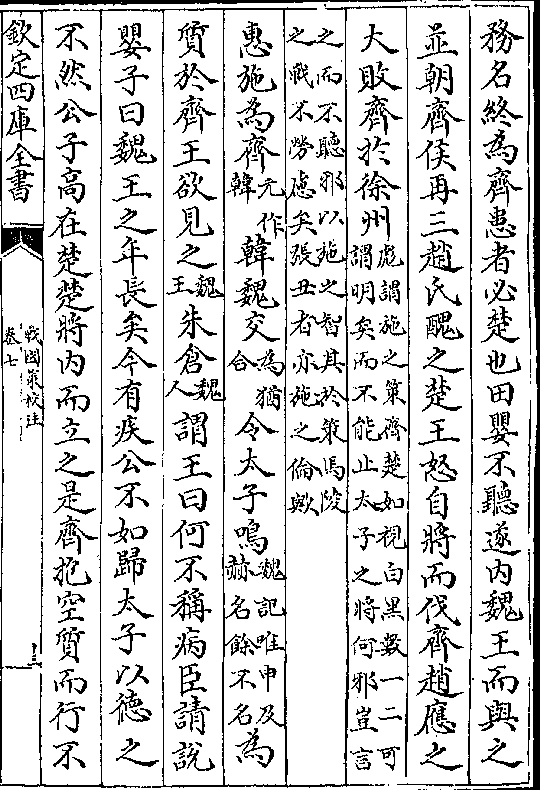 務名終為齊患者必楚也田嬰不聽遂内魏王而與之
並朝齊侯再三趙氏醜之楚王怒自將而伐齊趙應之
大敗齊於徐州彪謂施之策齊楚如視白黑數一二可謂明矣而不能止太子之將何邪豈言
之而不聽邪以施之智其於策馬陵之戰不勞慮矣張丑者亦施之倫歟
惠施為齊元作韓韓魏交為猶合令太子鳴魏記唯申及赫名餘不名為
質於齊王欲見之魏王朱倉魏人謂王曰何不稱病臣請說
嬰子曰魏王之年長矣今有疾公不如歸太子以德之
不然公子高在楚楚將内而立之是齊抱空質而行不
欽定四庫全書
戰國策校注
卷七
十三